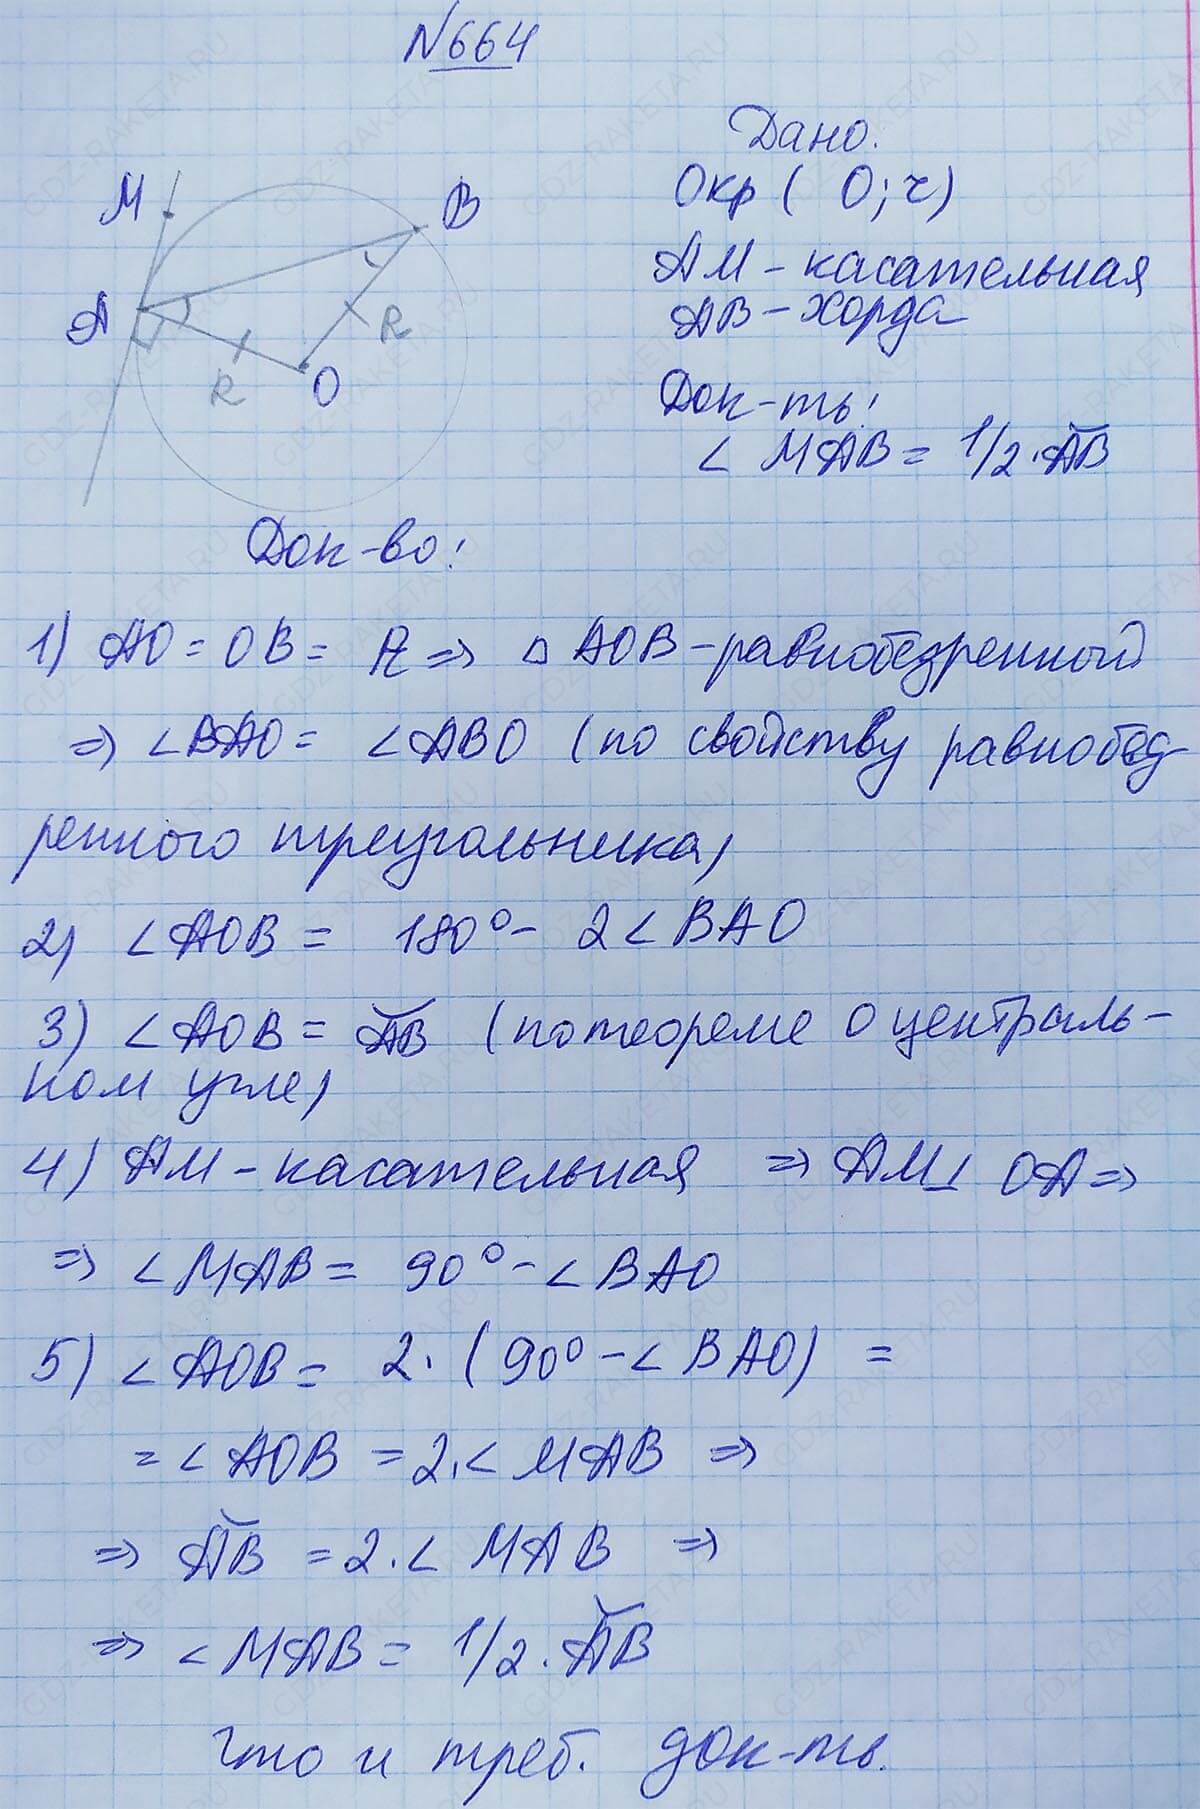 N664
Дано.
Окр ( O; r)
AM - касательная
AB - хорда
Док-ть:
∠ MAB = 1/2 · A͝B
M
B
A
R
R
O
Док-во:
1) AO = OB = R => △ AOB - равнобедренный
=> ∠BAO = ∠ABO (по свойству равнобед-
ренного треугольника)
2) ∠AOB = 180° - 2∠BAO
3) ∠AOB = A͝B (по теореме о централь-
ном угле)
4) AM - касательная => AM ⊥ OA =>
=> ∠MAB = 90° - ∠BAO
5) ∠AOB = 2 · (90° - ∠BAO) =
= ∠AOB = 2 · ∠ MAB =>
=> A͝B = 2 · ∠ MAB =>
=> ∠MAB = 1/2 · A͝B
Что и треб. док-ть.
GDZ-RAKETA.RU